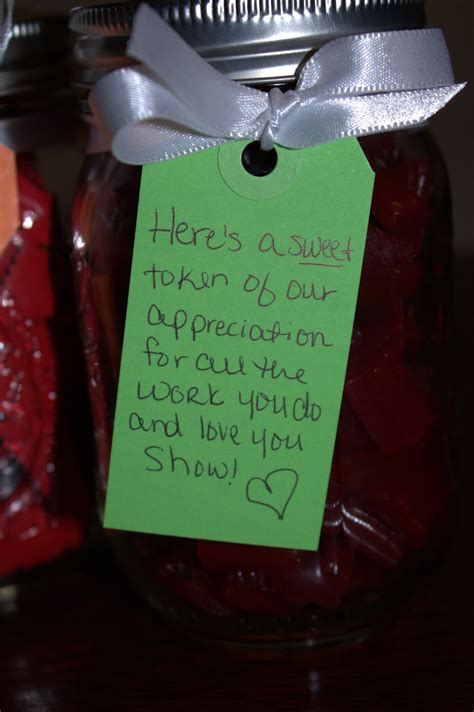 Here's a sweet
token of our
appreciation
for all the
work you do
and love you
show!